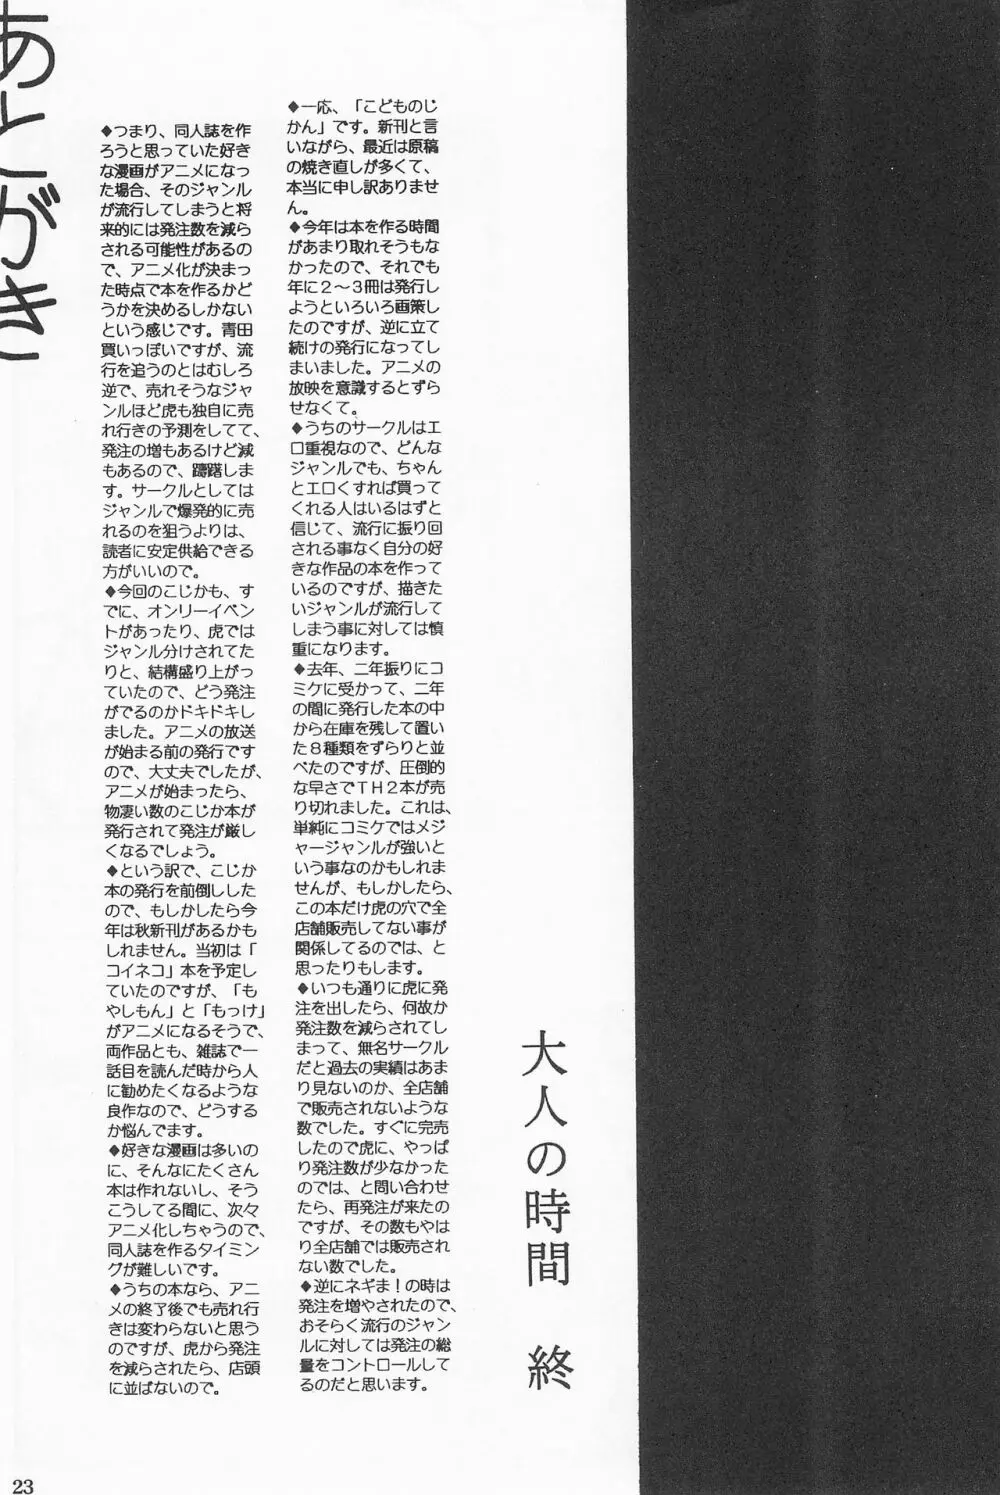 大人の時間　終
あとがき
◆一応、「こどものじ
かん」です。新刊と言
いながら、最近は原稿
の焼き直しが多くて、
本当に申し訳ありませ
ん。
◆今年は本を作る時間
があまり取れそうもな
かったので、それでも
年に２～３冊は発行し
ようといろいろ画策し
たのですが、逆に立て
続けの発行になってし
まいました。アニメの
放映を意識するとずら
せなくて。
◆うちのサークルはエ
ロ重視なので、どんな
ジャンルでも、ちゃん
とエロくすれば買って
くれる人はいるはずと
信じて、流行に振り回
される事なく自分の好
きな作品の本を作って
いるのですが、描きた
いジャンルが流行して
しまう事に対しては慎
重になります。
◆去年、二年振りにコ
ミケに受かって、二年
の間に発行した本の中
から在庫を残して置い
た８種類をずらりと並
べたのですが、圧倒的
な早さでＴＨ２本が売
り切れました。これは、
単純にコミケではメジ
ャージャンルが強いと
いう事なのかもしれま
せんが、もしかしたら、
この本だけ虎の穴で全
店舗販売してない事が
関係してるのでは、と
思ったりもします。
◆いつも通りに虎に発
注を出したら、何故か
発注数を減らされてし
まって、無名サークル
だと過去の実績はあま
り見ないのか、全店舗
で販売されないような
数でした。すぐに完売
したので虎に、やっぱ
り発注数が少なかった
のでは、と問い合わせ
たら、再発注が来たの
ですが、その数もやは
り全店舗では販売され
ない数でした。
◆逆にネギま！の時は
発注を増やされたので、
おそらく流行のジャン
ルに対しては発注の総
量をコントロールして
るのだと思います。
◆つまり、同人誌を作
ろうと思っていた好き
な漫画がアニメになっ
た場合、そのジャンル
が流行してしまうと将
来的には発注数を減ら
される可能性があるの
で、アニメ化が決まっ
た時点で本を作るかど
うかを決めるしかない
という感じです。青田
買いっぽいですが、流
行を追うのとはむしろ
逆で、売れそうなジャ
ンルほど虎も独自に売
れ行きの予測をしてて、
発注の増もあるけど減
もあるので、躊躇しま
す。サークルとしては
ジャンルで爆発的に売
れるのを狙うよりは、
読者に安定供給できる
方がいいので。
◆今回のこじかも、す
でに、オンリーイベン
トがあったり、虎では
ジャンル分けされてた
りと、結構盛り上がっ
ていたので、どう発注
がでるのかドキドキし
ました。アニメの放送
が始まる前の発行です
ので、大丈夫でしたが、
アニメが始まったら、
物凄い数のこじか本が
発行されて発注が厳し
くなるでしょう。
◆という訳で、こじか
本の発行を前倒ししした
ので、もしかしたら今
年は秋新刊があるかも
しれません。当初は「
コイネコ」本を予定し
ていたのですが、「も
やしもん」と「もっけ」
がアニメになるそうで、
両作品とも、雑誌で一
話目を読んだ時から人
に勧めたくなるような
良作なので、どうする
か悩んでます。
◆好きな漫画は多いの
に、そんなにたくさん
本は作れないし、そう
こうしてる間に、次々
アニメ化しちゃうので、
同人誌を作るタイミン
グが難しいです。
◆うちの本なら、アニ
メの終了後でも売れ行
きは変わらないと思う
のですが、虎から発注
を減らされたら、店頭
に並ばないので。
23